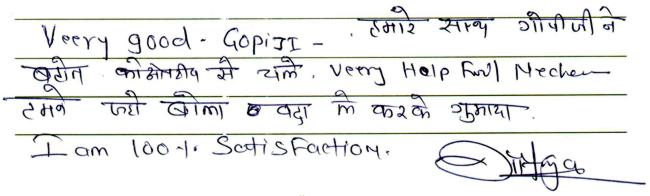 Veery good - GOPIJI - . हमारे साथ गोपीजी ने
बहोत कोओपरेटीव से चले. Veery Help Full Nechen
हमने जहाँ बोला वहा ले करके गुमाया.
I am 100% Satisfaction.